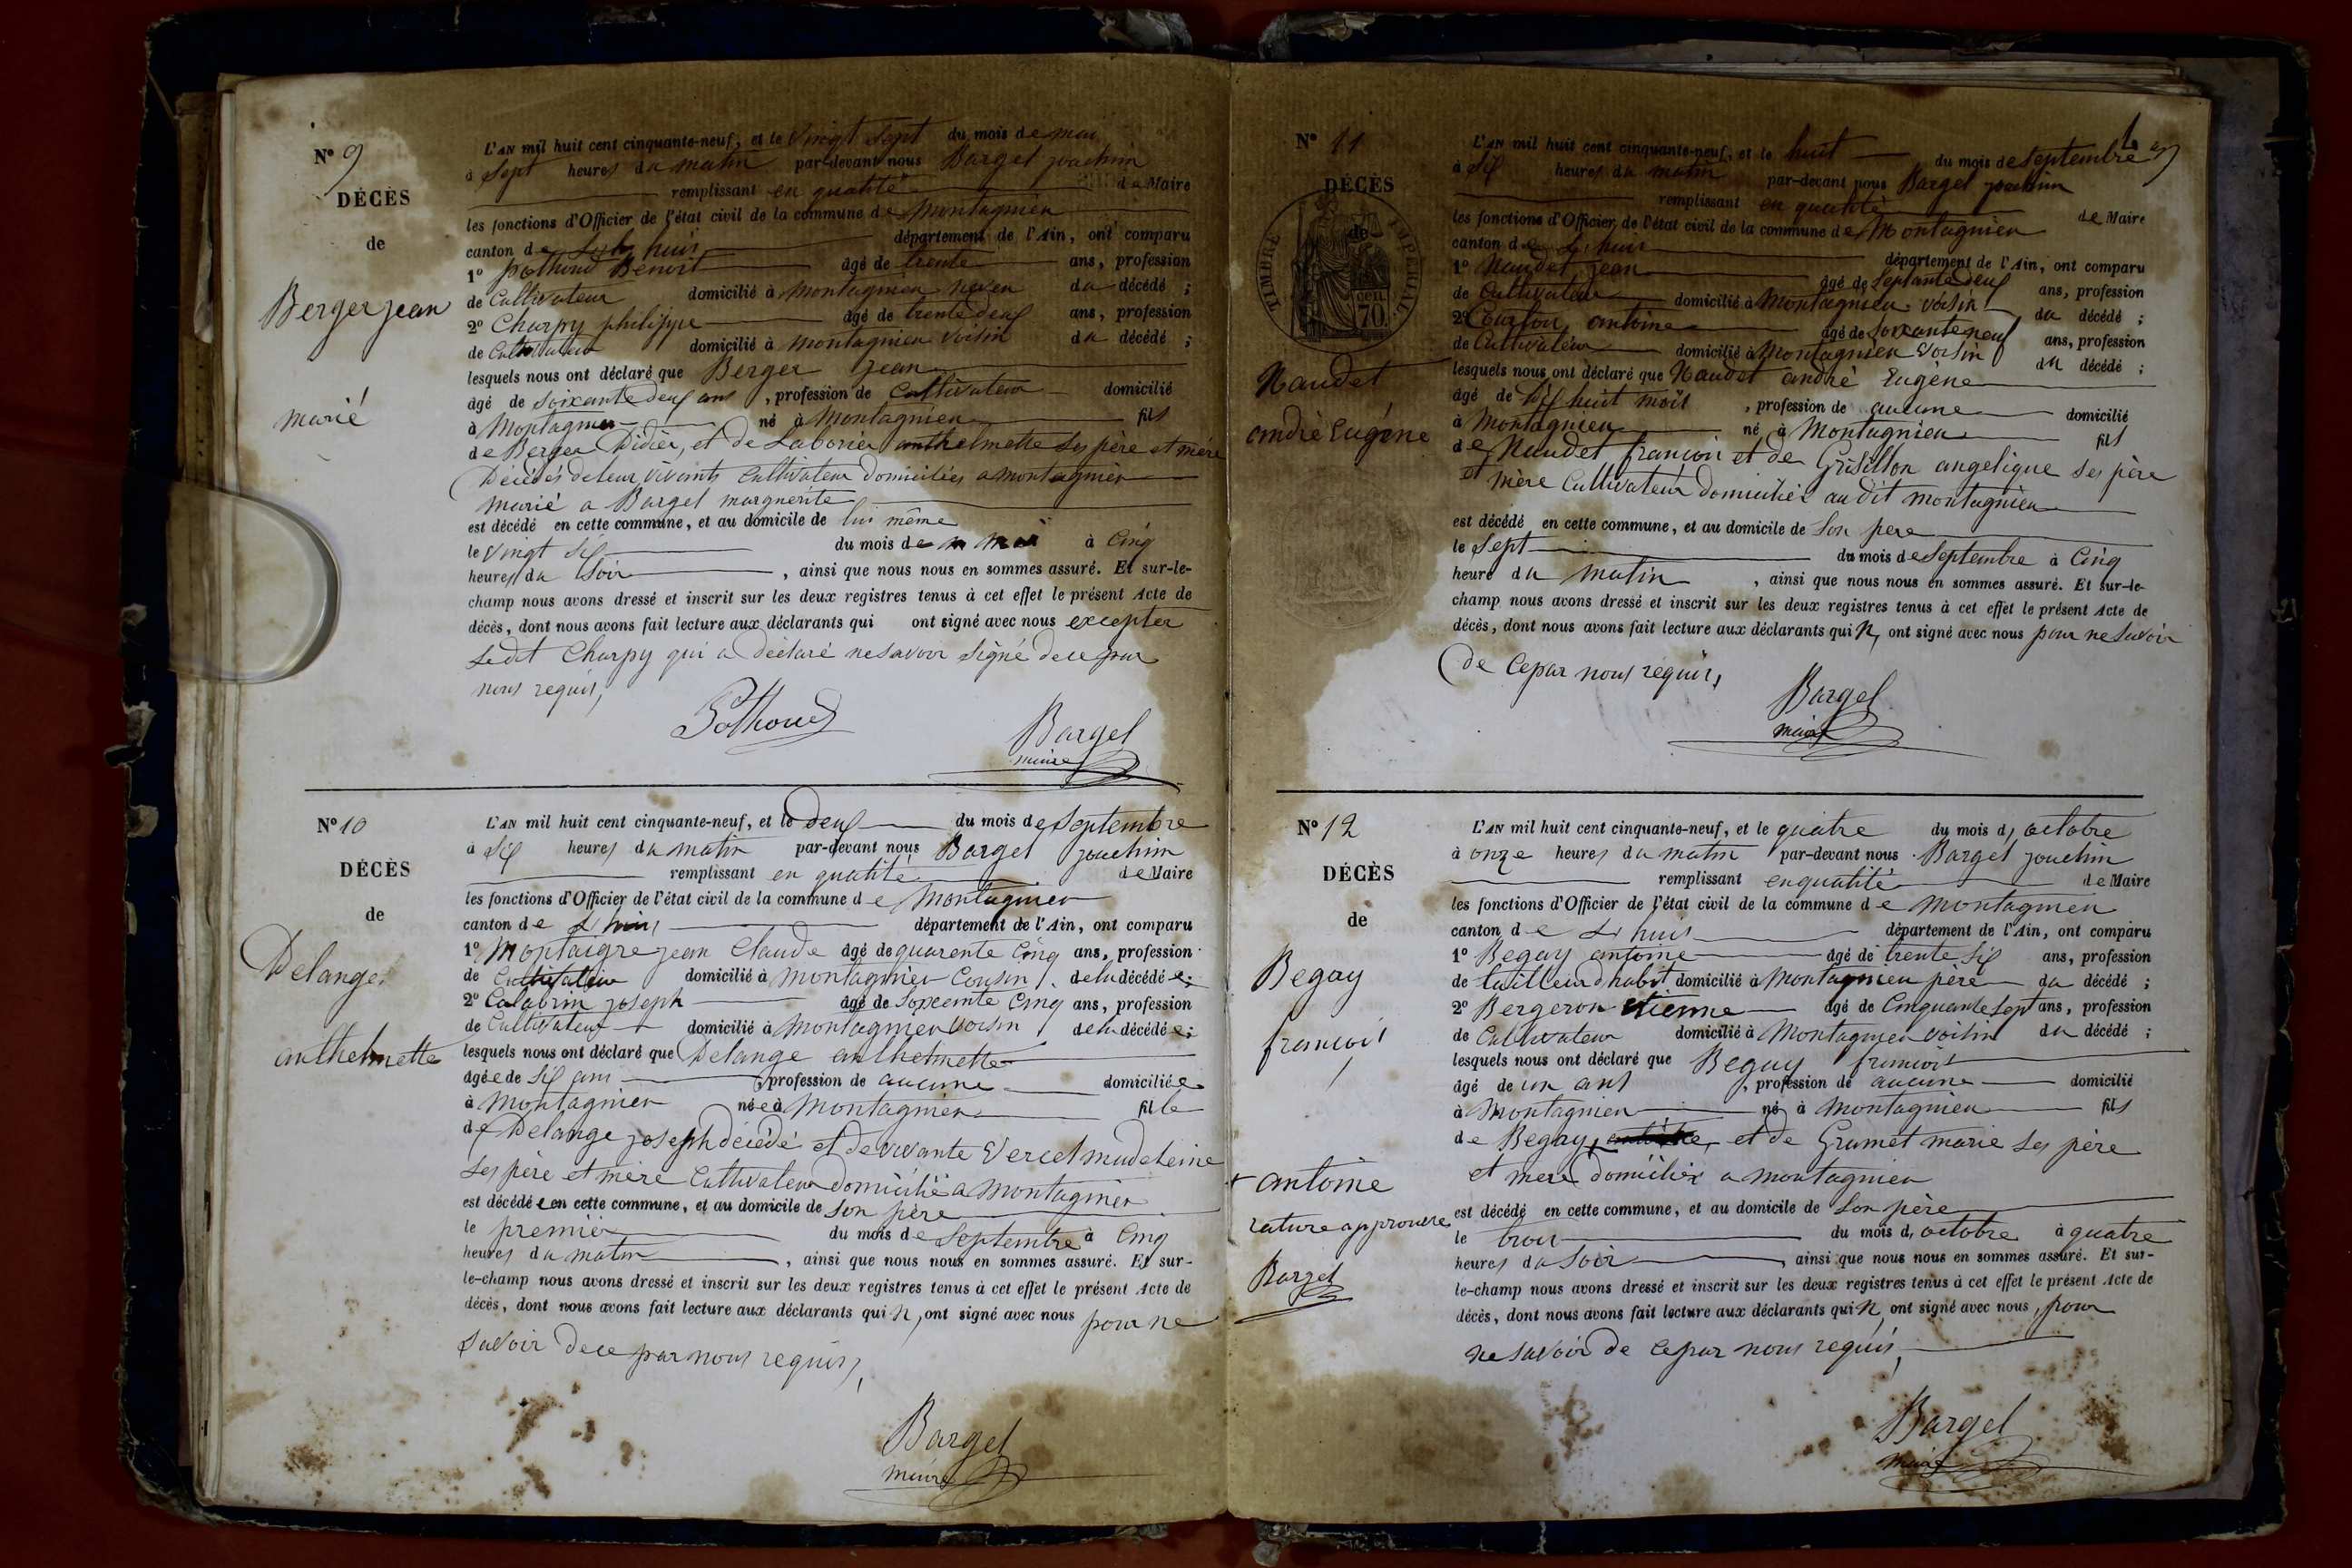 N° 9
DÉCÈS
de
Berger jean
marié
L'AN mil huit cent cinquante-neuf, et le vingt sept du mois de mai
à sept heures du matin par-devant nous Bargel joachim
remplissant en qualité de Maire
les fonctions d'Officier de l'état civil de la commune de Montagnieu
canton de Lhuis département de l'Ain, ont comparu
1° pothoud Benoit âgé de trente ans, profession
de Cultivateur domicilié à Montagnieu neveu du décédé ;
2° Charpy philippe âgé de trente deux ans, profession
de Cultivateur domicilié à montagnieu voisin du décédé ;
lesquels nous ont déclaré que Berger jean
âgé de soixante deux ans, profession de Cultivateur domicilié
à Montagnieu né à Montagnieu fils
de Berger Didier, et de Laborier anthelmette ses père et mère
Décédés de leur vivants cultivateur domiciliés a montagnieu
marié a Bargel marguerite
est décédé en cette commune, et au domicile de lui même
le vingt six du mois de mai à Cinq
heures du soir, ainsi que nous nous en sommes assuré. Et sur-le-
champ nous avons dressé et inscrit sur les deux registres tenus à cet effet le présent Acte de
décès, dont nous avons fait lecture aux déclarants qui ont signé avec nous excepter
ledit Charpy qui a déclaré ne savoir signé de ce par
nous requis,
Pothoud
Bargel
maire
N° 10
DÉCÈS
de
Delange
anthelmette
L'AN mil huit cent cinquante-neuf, et le deux du mois de Septembre
à six heures du matin par-devant nous Bargel joachim
remplissant en qualité de Maire
les fonctions d'Officier de l'état civil de la commune de Montagnieu
canton de Lhuis département de l'Ain, ont comparu
1° Montaigre jean Claude âgé de quarente Cinq ans, profession
de Cultivateur domicilié à montagnieu Cousin de la décédée ;
2° Calabrin joseph âgé de soixente Cinq ans, profession
de Cultivateur domicilié à Montagnieu voisin de la décédée ;
lesquels nous ont déclaré que Delange anthelmette
âgée de six ans, profession de aucune domiciliée
à Montagnieu née à Montagnieu fille
de Delange joseph décédé et de vivante Vercel madeleine
ses père et mère Cultivateur domicilié a Montagnieu
est décédée en cette commune, et au domicile de son père
le premier du mois de Septembre à Cinq
heures du matin, ainsi que nous nous en sommes assuré. Et sur-
le-champ nous avons dressé et inscrit sur les deux registres tenus à cet effet le présent Acte de
décès, dont nous avons fait lecture aux déclarants qui n'ont signé avec nous pour ne
savoir de ce par nous requis,
Bargel
maire
N° 11
DÉCÈS
de
TIMBRE IMPÉRIAL
70 CEN.
Naudet
andré Eugène
L'AN mil huit cent cinquante-neuf, et le huit du mois de septembre
à six heures du matin par-devant nous Bargel joachim
remplissant en qualité de Maire
les fonctions d'Officier de l'état civil de la commune de Montagnieu
canton de Lhuis département de l'Ain, ont comparu
1° Naudet jean âgé de Septante deux ans, profession
de Cultivateur domicilié à Montagnieu voisin du décédé ;
2° Courtou antoine âgé de soixante neuf ans, profession
de Cultivateur domicilié à Montagnieu voisin du décédé ;
lesquels nous ont déclaré que Naudet andré Eugène
âgé de dix huit mois, profession de aucune domicilié
à Montagnieu né à Montagnieu fils
de Naudet françois et de Grisillon angelique ses père
et mère Cultivateur domiciliés audit montagnieu
est décédé en cette commune, et au domicile de son pere
le sept du mois de septembre à Cinq
heure du matin, ainsi que nous nous en sommes assuré. Et sur-le-
champ nous avons dressé et inscrit sur les deux registres tenus à cet effet le présent Acte de
décès, dont nous avons fait lecture aux déclarants qui n, ont signé avec nous pour ne savoir
de ce par nous requis,
Bargel
maire
N° 12
DÉCÈS
de
Begay
francois
+ antoine
rature approuvée
Bargel
L'AN mil huit cent cinquante-neuf, et le quatre du mois d, octobre
à onze heures du matin par-devant nous Bargel joachin
remplissant en qualité de Maire
les fonctions d'Officier de l'état civil de la commune de Montagnieu
canton de Lhuis département de l'Ain, ont comparu
1° Begay antoine âgé de trente six ans, profession
de tailleur d habit domicilié à Montagnieu père du décédé ;
2° Bergeron etienne âgé de Cinquante sept ans, profession
de Cultivateur domicilié à Montagnieu voisin du décédé ;
lesquels nous ont déclaré que Begay francois
âgé de un ans, profession de aucune domicilié
à Montagnieu né à Montagnieu fils
de Begay + et de Grumet marie ses père
et mere domiciliés a montagnieu
est décédé en cette commune, et au domicile de son père
le trois du mois d, octobre à quatre
heures du soir, ainsi que nous nous en sommes assuré. Et sur-
le-champ nous avons dressé et inscrit sur les deux registres tenus à cet effet le présent Acte de
décès, dont nous avons fait lecture aux déclarants qui n, ont signé avec nous, pour
ne savoir de ce par nous requis,
Bargel
maire